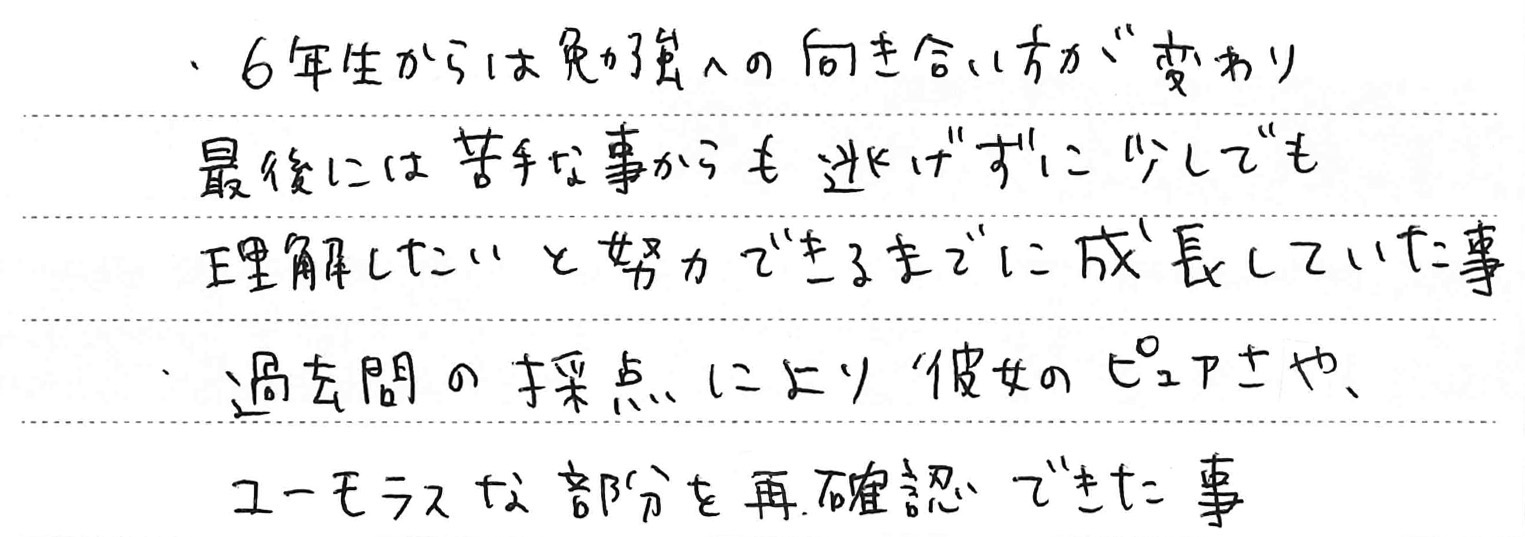 ・6年生からは勉強への向き合い方が変わり
最後には苦手な事からも逃げずに少しでも
理解したいと努力できるまでに成長していた事
・過去問の採点により彼女のピュアさや、
ユーモラスな部分を再確認できた事